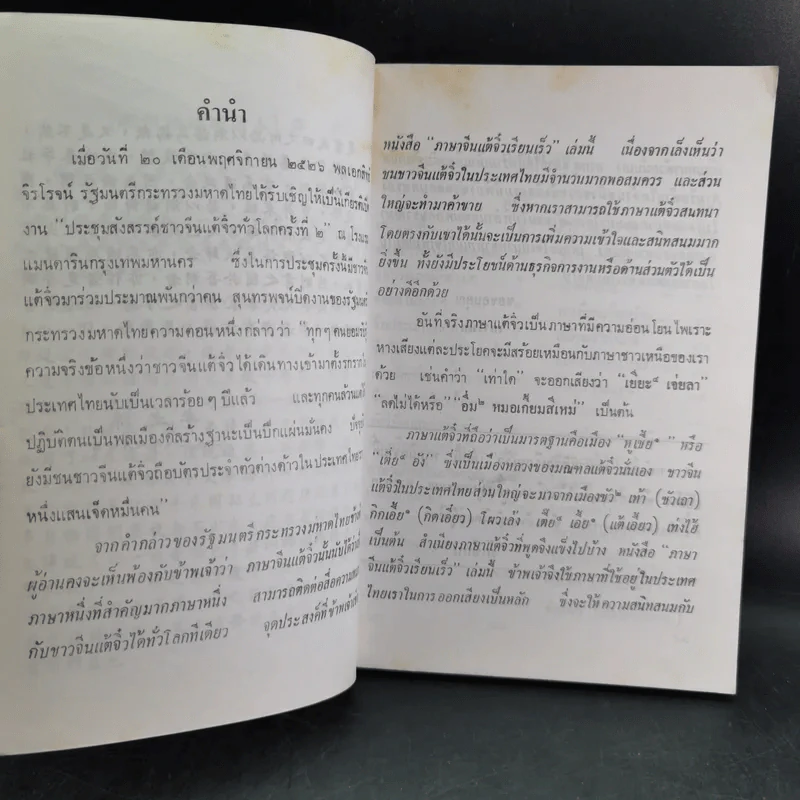 คำนำ
เมื่อวันที่ ๒๐ เดือนพฤศจิกายน ๒๕๒๖ พลเอกสิทธิ
จิรโรจน์ รัฐมนตรีกระทรวงมหาดไทยได้รับเชิญให้เป็นเกียรติเปิด
งาน "ประชุมสังสรรค์ชาวจีนแต้จิ๋วทั่วโลกครั้งที่ ๒" ณ โรงแรม
แมนดารินกรุงเทพมหานคร ซึ่งในการประชุมครั้งนี้มีชาวจีน
แต้จิ๋วมาร่วมประมาณพันกว่าคน สุนทรพจน์ปิดงานของรัฐมนตรี
กระทรวงมหาดไทยความตอนหนึ่งกล่าวว่า "ทุกๆคนยอมรับ
ความจริงข้อหนึ่งว่าชาวจีนแต้จิ๋วได้เดินทางเข้ามาตั้งรกราก
ประเทศไทยนับเป็นเวลาร้อยๆปีแล้ว และทุกคนล้วนแต่
ปฏิบัติตนเป็นพลเมืองดีสร้างฐานะเป็นปึกแผ่นมั่นคง ปัจจุบัน
ยังมีชนชาวจีนแต้จิ๋วถือบัตรประจำตัวต่างด้าวในประเทศไทย
หนึ่งแสนเจ็ดหมื่นคน"
จากคำกล่าวของรัฐมนตรีกระทรวงมหาดไทยข้างต้น
ผู้อ่านคงจะเห็นพ้องกับข้าพเจ้าว่า ภาษาจีนแต้จิ๋วนั้นนับได้ว่าเป็น
ภาษาหนึ่งที่สำคัญมากภาษาหนึ่ง สามารถติดต่อสื่อความหมาย
กับชาวจีนแต้จิ๋วได้ทั่วโลกทีเดียว จุดประสงค์ที่ข้าพเจ้าเขียน
หนังสือ "ภาษาจีนแต้จิ๋วเรียนเร็ว" เล่มนี้ เนื่องจากเล็งเห็นว่า
ชนชาวจีนแต้จิ๋วในประเทศไทยมีจำนวนมากพอสมควร และส่วน
ใหญ่จะทำมาค้าขาย ซึ่งหากเราสามารถใช้ภาษาแต้จิ๋วสนทนา
โดยตรงกับเขาได้นั้นจะเป็นการเพิ่มความเข้าใจและสนิทสนมมาก
ยิ่งขึ้น ทั้งยังมีประโยชน์ด้านธุรกิจการงานหรือด้านส่วนตัวได้เป็น
อย่างดีอีกด้วย
อันที่จริงภาษาแต้จิ๋วเป็นภาษาที่มีความอ่อนโยนไพเราะ
หางเสียงแต่ละประโยคจะมีสร้อยเหมือนกับภาษาชาวเหนือของเรา
ด้วย เช่นคำว่า "เท่าใด" จะออกเสียงว่า "เยี่ยะ⁴ เจ่ยลา"
"ลดไม่ได้หรือ" "อื่ม² หมอเกี้ยมสี่เหม่" เป็นต้น
ภาษาแต้จิ๋วที่ถือว่าเป็นมารตฐานคือเมือง "หูเซี้ย" หรือ
"เตี่ย อัง" ซึ่งเป็นเมืองหลวงของมณฑลแต้จิ๋วนั่นเอง ชาวจีน
แต้จิ๋วในประเทศไทยส่วนใหญ่จะมาจากเมืองซัว² เท้า (ซัวเถา)
กิกเอี้ย (กิดเอี๋ยว) โผวเล้ง เตี้ย เอี้ย (แต้เอี้ยว) เท่งไฮ้
เป็นต้น สำเนียงภาษาแต้จิ๋วที่พูดจึงแข็งไปบ้าง หนังสือ "ภาษา
จีนแต้จิ๋วเรียนเร็ว" เล่มนี้ ข้าพเจ้าจึงใช้ภาษาที่ใช้อยู่ในประเทศ
ไทยเราในการออกเสียงเป็นหลัก ซึ่งจะให้ความสนิทสนมกับ